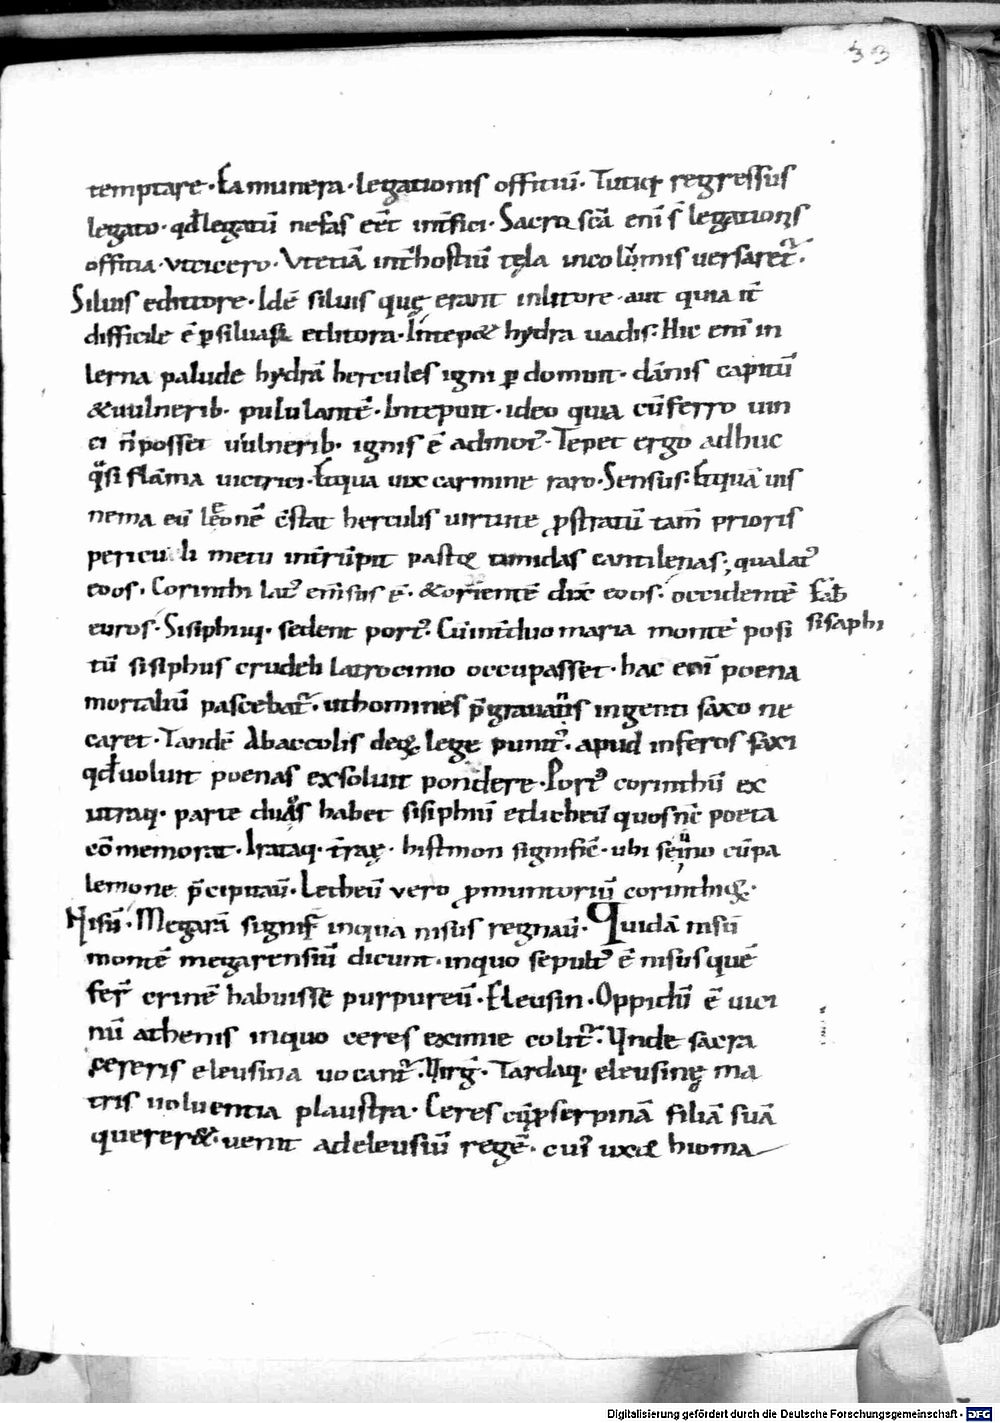 53
temptare · Ea munera · legationis offitiū · Tutuſ regressus
legato · qđ legatū nefas eēt int̄fici · Sacra scā enī s̄ legationis
offitia · ut cicero · Ut etiā int̄ hostiū tęla incolumis uersaret̄ ·
Siluis editiore · Idē siluis quę erant in litore · aut quia it̄
difficile ē p siluas et litora · Intepet hydra uadis : Hic enī in
lerna palude hydrā hercules igni pdomuit · dānis capitū
& uulnerib · pululantē · Intepuit · ideo quia cū ferro uin
ci n̄ posset uulnerib · ignis ē admot · Tepet ergo adhuc
qͣsi flāma uictrici · Et qua uix carmine raro · Sensus : Et quā uis
nema eū leonē c̄stat herculis uirtute prostratū tam̄ prioris
periculi metu int̄rūpit pastor timidas cantilenas ; qua lat
eoos · Corinthi lat em̄sus ē · & orientē dix̄ eoos · occidentē
Fab
euros · Sisiphiuſ · sedent port · Cū int̄ duo maria montē posi
sisaphi
tū sisiphus crudeli latrocinio occupasset · hac enī poena
mortaliū pascebat̄ · ut homines p̄grauatus ingenti saxo ne
caret · Tandē ab accolis deq lege punit · apud inferos saxi
qđ uoluit poenas exsoluit pondere · Port corinthū ex
utraq · parte duas habet sisiphiū et licheū quos nc̄ poeta
cōmemorat · Irataq · t̄raę · histmon signific̄ · ubi se ino cū pa
lemone p̄cipitauit · Lecheū uero promuntoriū corinthi ē ·
Nisū · Megarā signif̄ in qua nisus regnauit · Quidā nisū
montē megarensiū dicunt · in quo sepult ē nisus quē
fer̄ crinē habuisse purpureū · Eleusin · Oppidū ē uici
nū athenis in quo ceres eximie colit̄ · Unde sacra
cereris eleusina uocant̄ · Uirg̃ · Tardaq · eleusinę ma
tris uoluentia plaustra · Ceres cū proserpinā filiā suā
quereret · uenit ad eleusiū regē · cui uxor hioma
Digitalisierung gefördert durch die Deutsche Forschungsgemeinschaft · DFG